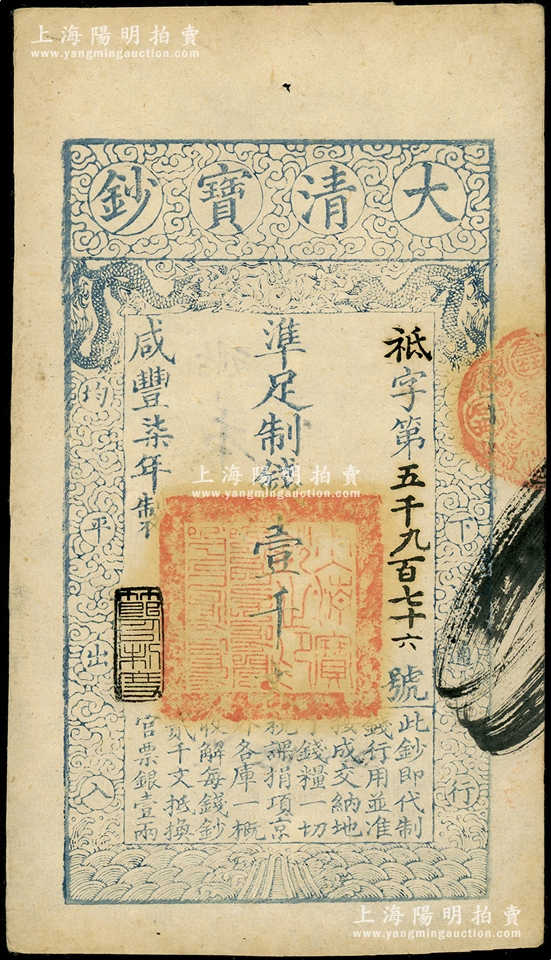 上海陽明拍賣
www.yangmingauction.com
大清寶鈔
祗字第五千九百七十六號
準足制錢壹千
咸豐柒年製
天下通行
均平出入
此鈔即代制
錢行用並准
成交納地
錢糧一切
稅課捐項京
各庫一概
收解每錢鈔
貳千文抵換
官票銀壹兩
上海陽明拍賣
www.yangmingauction.com
上海陽明拍賣
www.yangmingauction.com